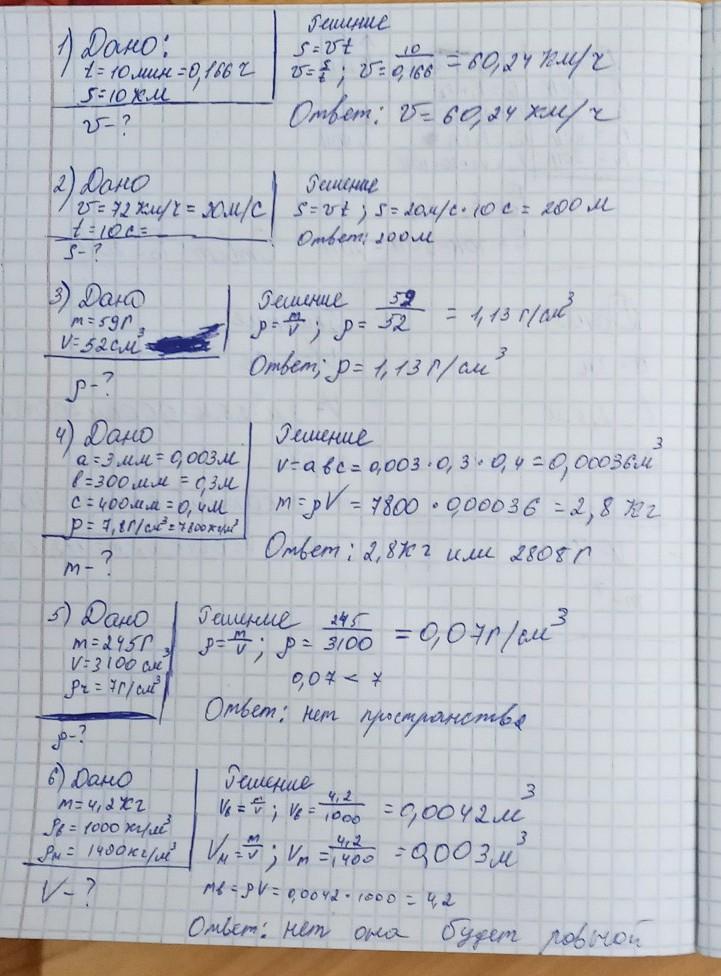 1) Дано:
t = 10 мин = 0,166 ч
S = 10 км
v - ?
Решение
S = vt
v = s/t ; v = 10/0,166 = 60,24 км/ч
Ответ: v = 60,24 км/ч
2) Дано
v = 72 км/ч = 20 м/с
t = 10 с =
S - ?
Решение
S = vt ; S = 20 м/с · 10 с = 200 м
Ответ: 200 м
3) Дано
m = 59 г
V = 52 см³
ρ - ?
Решение
ρ = m/v ; ρ = 59/52 = 1,13 г/см³
Ответ; ρ = 1,13 г/см³
4) Дано
a = 3 мм = 0,003 м
b = 300 мм = 0,3 м
c = 400 мм = 0,4 м
ρ = 7,8 г/см³ = 7800 кг/м³
m - ?
Решение
V = abc = 0,003 · 0,3 · 0,4 = 0,00036 м³
m = ρV = 7800 · 0,00036 = 2,8 кг
Ответ: 2,8 кг или 2808 г
5) Дано
m = 245 г
V = 3100 см³
ρч = 7 г/см³
ρ - ?
Решение
ρ = m/v ; ρ = 245/3100 = 0,07 г/см³
0,07 < 7
Ответ: нет пространства
6) Дано
m = 4,2 кг
ρв = 1000 кг/м³
ρм = 1400 кг/м³
V - ?
Решение
Vв = /v ; Vв = 4,2/1000 = 0,0042 м³
Vм = m/v ; Vм = 4,2/1400 = 0,003 м³
mв = ρV = 0,0042 · 1000 = 4,2
Ответ: нет она будет